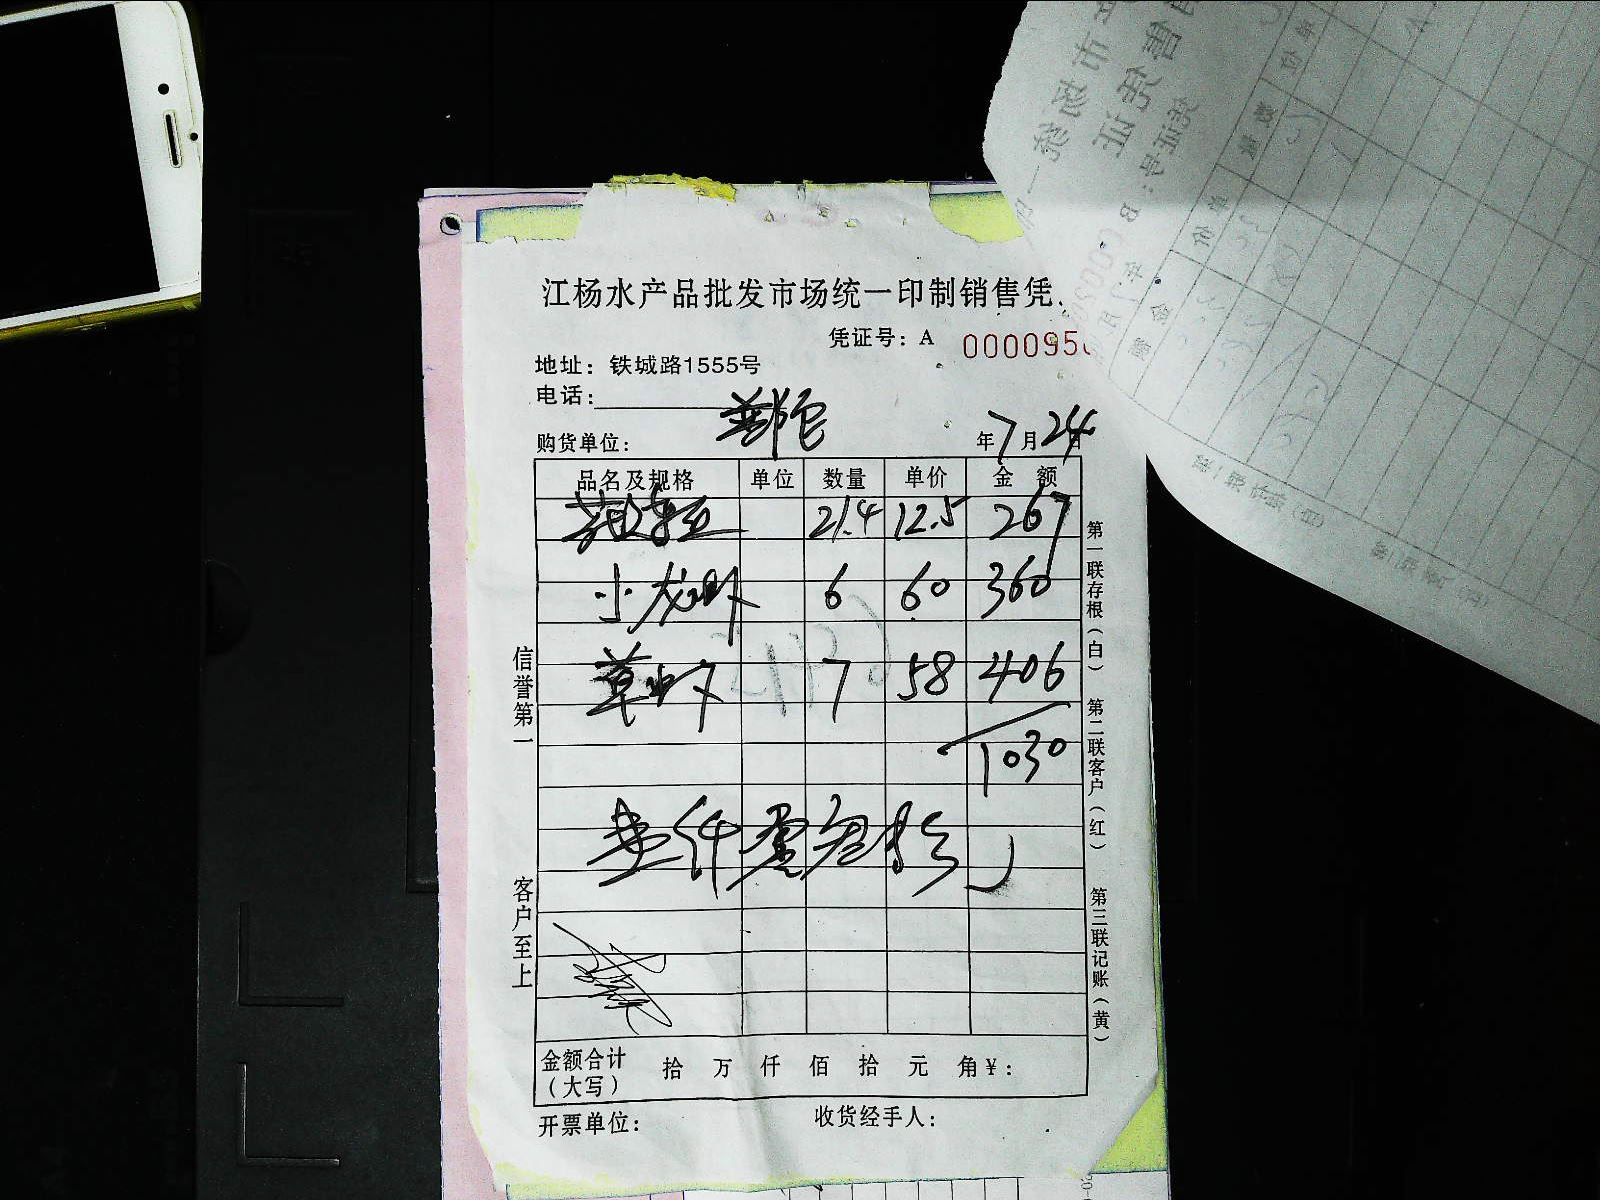 江杨水产品批发市场统一印制销售凭
凭证号：A 000095
地址：铁城路1555号
电话：
购货单位： 普陀 年7月24日
品名及规格 单位 数量 单价 金额
21.4 12.5 267
小龙虾 6 60 360
草虾 7 58 406
1030
壹仟零叁拾
金额合计（大写） 拾 万 仟 佰 拾 元 角¥：
开票单位： 收货经手人：
信誉第一
客户至上
第一联存根（白）
第二联客户（红）
第三联记账（黄）